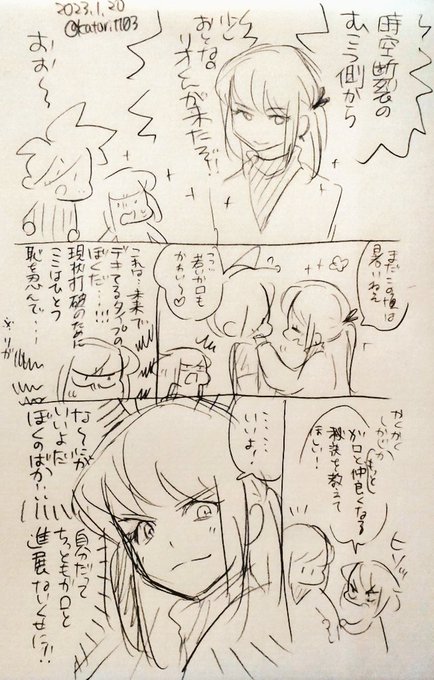 2023.1.20
@katari1703
時空断裂の
むこう側から
少し
おとなの
リオくんが来たぞ!!
おお〜
まだこの頃は
暑いねえ
若いガロも
かわい〜♡
これは…未来で
デキてるタイプの
ぼくだ…!!!
現状打破のために
ここはひとつ
恥を忍んで…
かくかく
しかじか
ガロと
もっと
仲良くなる
秘訣を教えて
ほしい!
ヒソ
………
いいよ!
な〜にが
いいよだ
ぼくのばか!!
自分だって
ちっともガロと
進展ないくせに!!